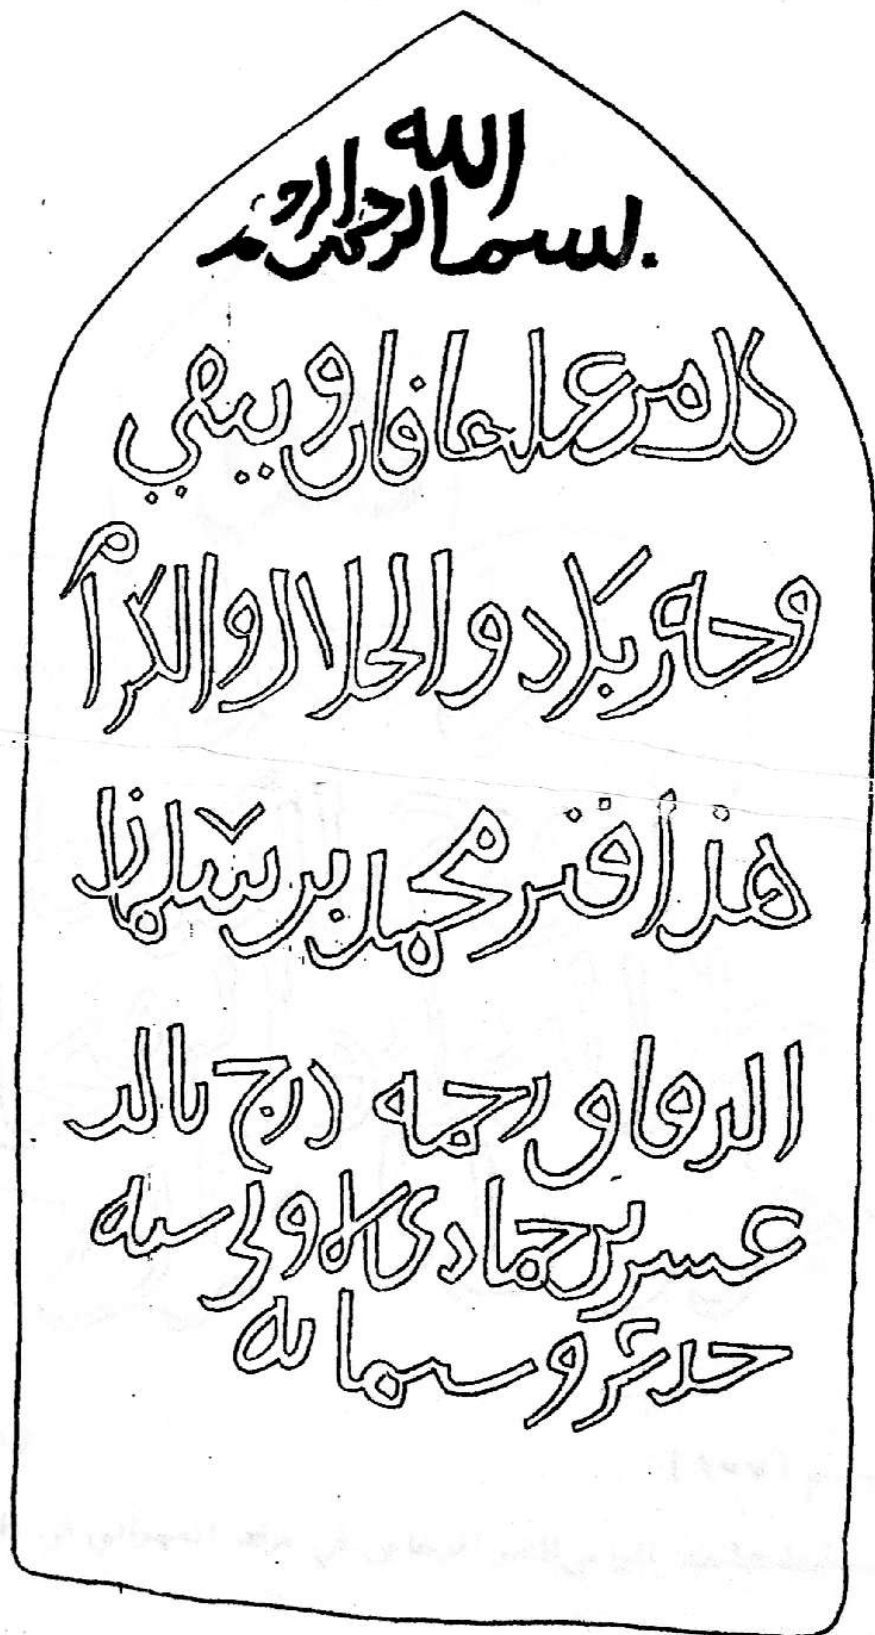 بسم الله الرحمن الرحيم
كل من عليها فان و يبقي
وجه ربك ذو الجلال والاكرام
هذا قبر محمد بن سليمان
رحمه
عشرين جمادى الاولى سنه
وسبعمايه